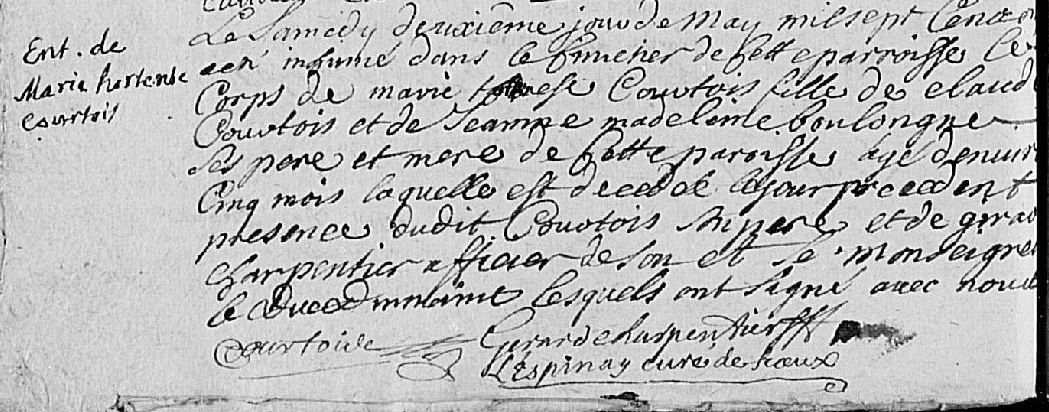 Ent. de
Marie hortense
Courtois
Le Samedy deuxiême jour de May mil sept Cent
a eté inhumé dans le Cimetier de Cette paroisse le
Corps de marie Courtois fille de Claude
Courtois et de Jeanne madeleine boulongne
Ses pere et mere de Cette paroisse agé denviron
Cinq mois laquelle est decedeé le jour precedent
presence dudit Courtois Son pere et de gerard
charpentier officier de Son et Se monseigneur
le Duc Dumaine lesquels ont Signé avec nous
Courtois
Gerard charpentier
L'Espinay curé de Sceaux